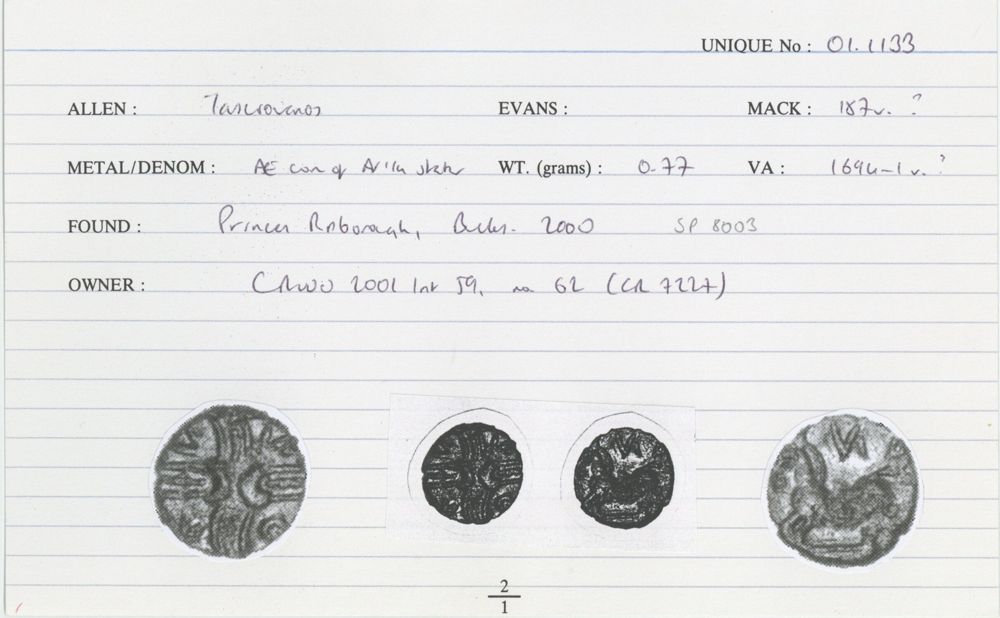 UNIQUE No : 01.1133
ALLEN : Tasciovanos EVANS : MACK : 187v. ?
METAL/DENOM : AE core of AV ¼ stater WT. (grams) : 0.77 VA : 1694-1 v. ?
FOUND : Princes Risborough, Bucks. 2000 SP 8003
OWNER : 2001 59, no 62 (CR 7227)
2
1